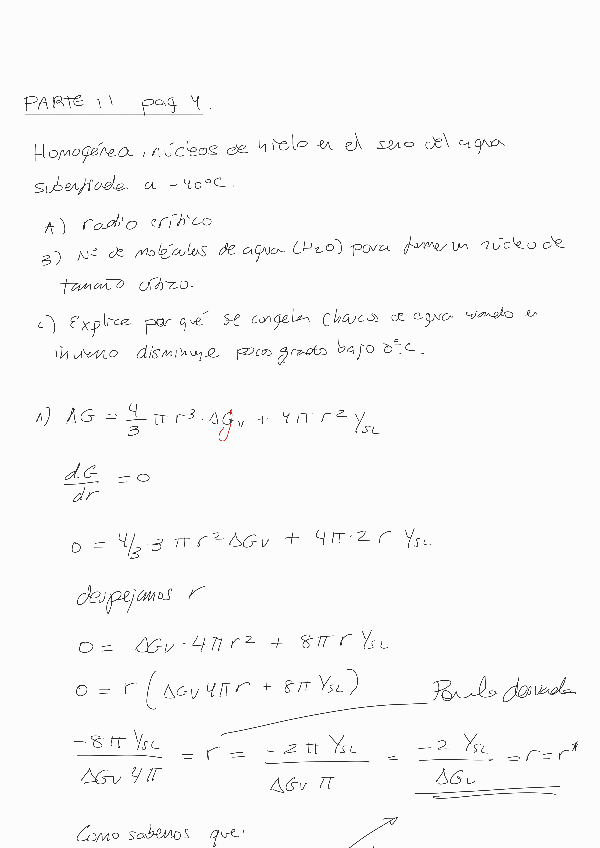 PARTE 11 pag 4.
Homogénea, núcleos de hielo en el seno del agua
subenfriada a -40°C.
A) radio crítico
B) Nº de moléculas de agua (H2O) para formar un núcleo de
tamaño crítico.
C) Explica por qué se congelan charcos de agua cuando en
invierno disminuye pocos grados bajo 0°C.
A) ΔG = 4/3 π r³ · ΔGv + 4π r² γSL
dG/dr = 0
0 = 4/3 · 3 π r² ΔGv + 4π · 2 r γSL
despejamos r
0 = ΔGv · 4π r² + 8π r γSL
0 = r (ΔGv 4π r + 8π γSL)
-8π γSL / ΔGv 4π = r = -2π γSL / ΔGv π = -2 γSL / ΔGv = r = r*
Como sabemos que: